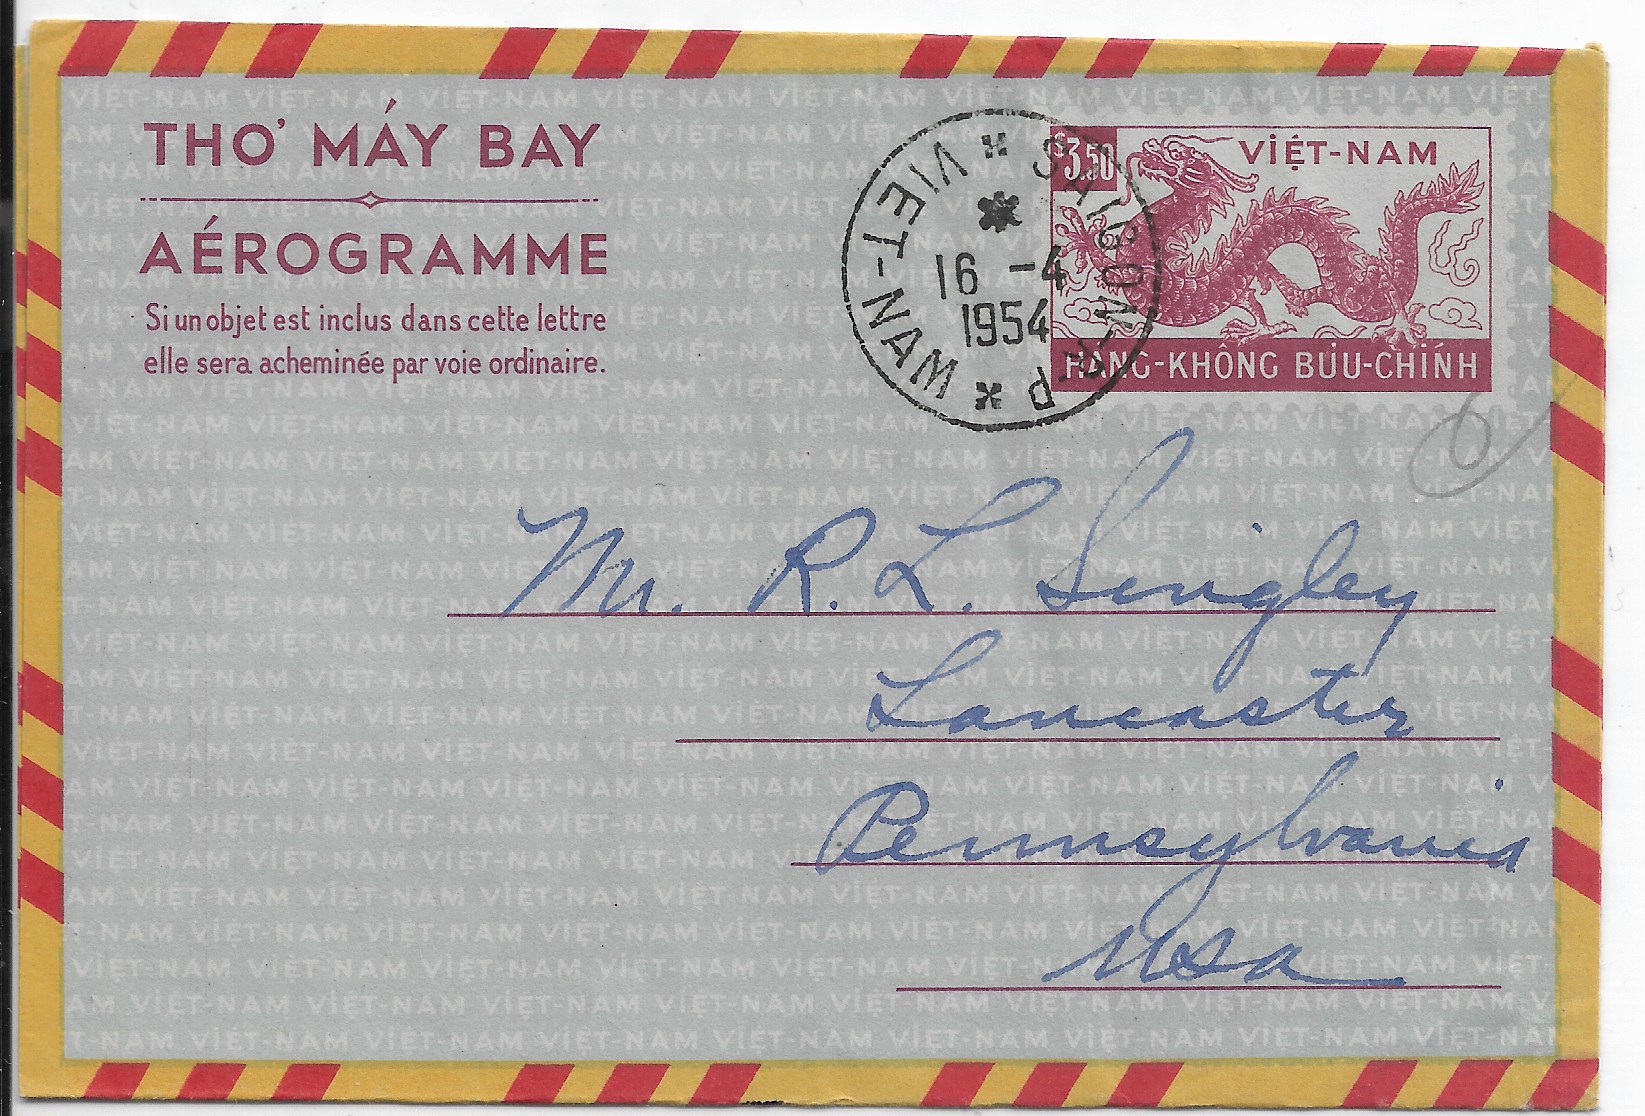 THƠ MÁY BAY
AÉROGRAMME
Si un objet est inclus dans cette lettre
elle sera acheminée par voie ordinaire.
SAIGON-R-P
VIET-NAM
16 -4
1954
$3.50
VIỆT-NAM
HÀNG-KHÔNG BƯU-CHÍNH
Mr. R. L. Singley
Lancaster
Pennsylvania
USA